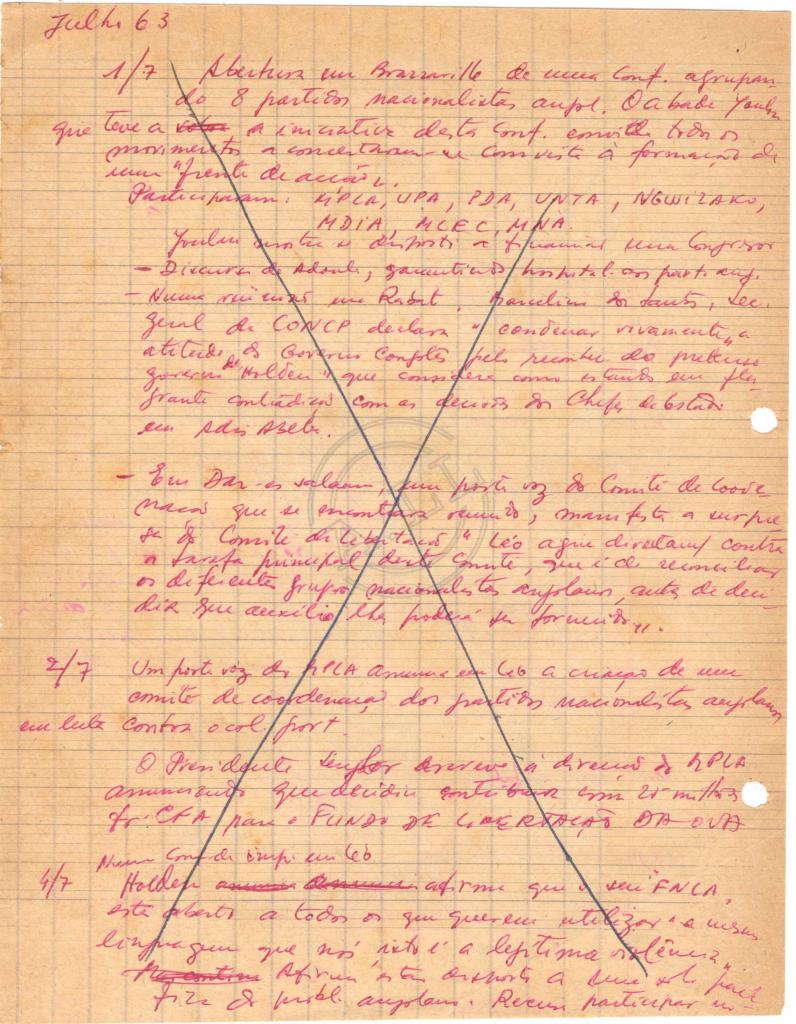 Julho 63
1/7 Abertura em Brazzaville de uma Conf. agrupan-
do 8 partidos nacionalistas angol. O abade Youlou
que teve a a iniciativa desta Conf. convida todos os
movimentos a concertarem-se com vista à formação de
uma "frente de acção".
Participaram: MPLA, UPA, PDA, UNTA, NGWIZAKO,
MDIA, MLEC, MNA.
Youlou mostra-se disposto a financiar um Congresso
- Discurso de Adoula, garantindo hospital. aos part. ang.
- Numa reunião em Rabat, Marcelino dos Santos, Sec.
geral da CONCP declara "condenar vivamente" a
atitude do Governo Congolês pelo reconhe. do pretenso
governo de "Holden" que considera como estando em fla-
grante contradição com as decisões dos Chefes de Estado
em Adis Abeba.
- Em Dar-es-salaam, um porta voz do Comité de Coorde-
nação que se encontrava reunido, manifesta a surpre-
sa do Comité de Libertação "Léo agiu directam/ contra
a tarefa principal deste Comité, que é de reconciliar
os diferentes grupos nacionalistas angolanos, antes de deci-
dir que auxílio lhes poderá ser fornecido".
2/7 Um porta voz do MPLA anuncia em Léo a criação de um
comité de coordenação dos partidos nacionalistas angolanos
em luta contra o col. port.
O Presidente Senghor escreve à direcção do MPLA
anunciando que decidiu contribuir com 25 milhões
fr. CFA para o FUNDO DE LIBERTAÇÃO DA OUA
Numa Conf. de imp. em Léo
4/7 Holden anuncia anuncia afirma que o seu FNLA,
está aberto a todos os que querem utilizar "a mesma
linguagem que nós, isto é a legítima violência"
Afirma estar disposto a uma sol. pací-
fica do probl. angolano. Recusa participar